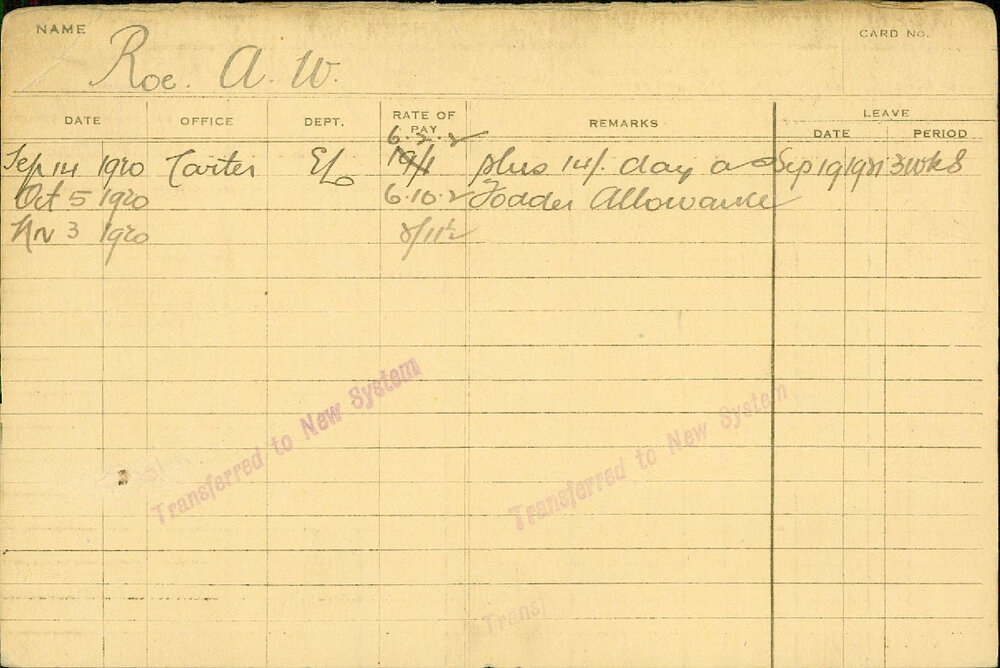 NAME
CARD No.
Roe. A. W.
DATE OFFICE DEPT. RATE OF PAY REMARKS LEAVE DATE PERIOD
6.3.2
Sep 14 1920 Carter 19/1 plus 14/. day as Sep 19 1921 3 wks
Oct 5 1920 6.10.2 Fodder Allowance
Nov 3 1920 8/11½
Transferred to New System
Transferred to New System
Trans